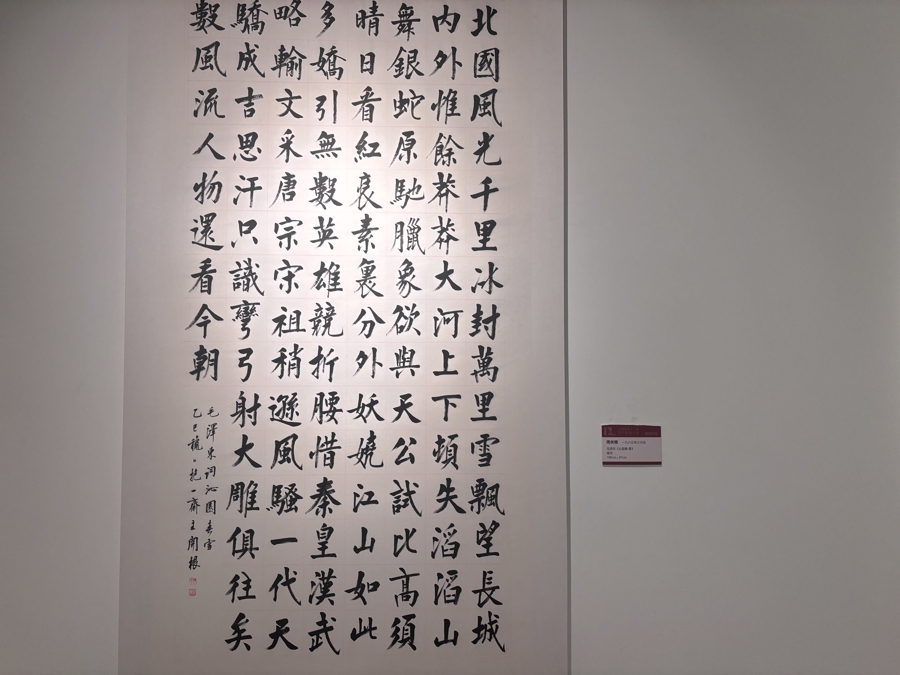 北國風光千里冰封萬里雪飄望長城
内外惟餘莽莽大河上下頓失滔滔山
舞銀蛇原馳臘象欲與天公試比高須
晴日看紅裝素裹分外妖嬈江山如此
多嬌引無數英雄競折腰惜秦皇漢武
略輸文采唐宗宋祖稍遜風騷一代天
驕成吉思汗只識彎弓射大雕俱往矣
數風流人物還看今朝
毛澤東詞沁園春雪
乙巳穐抱一齋主開根